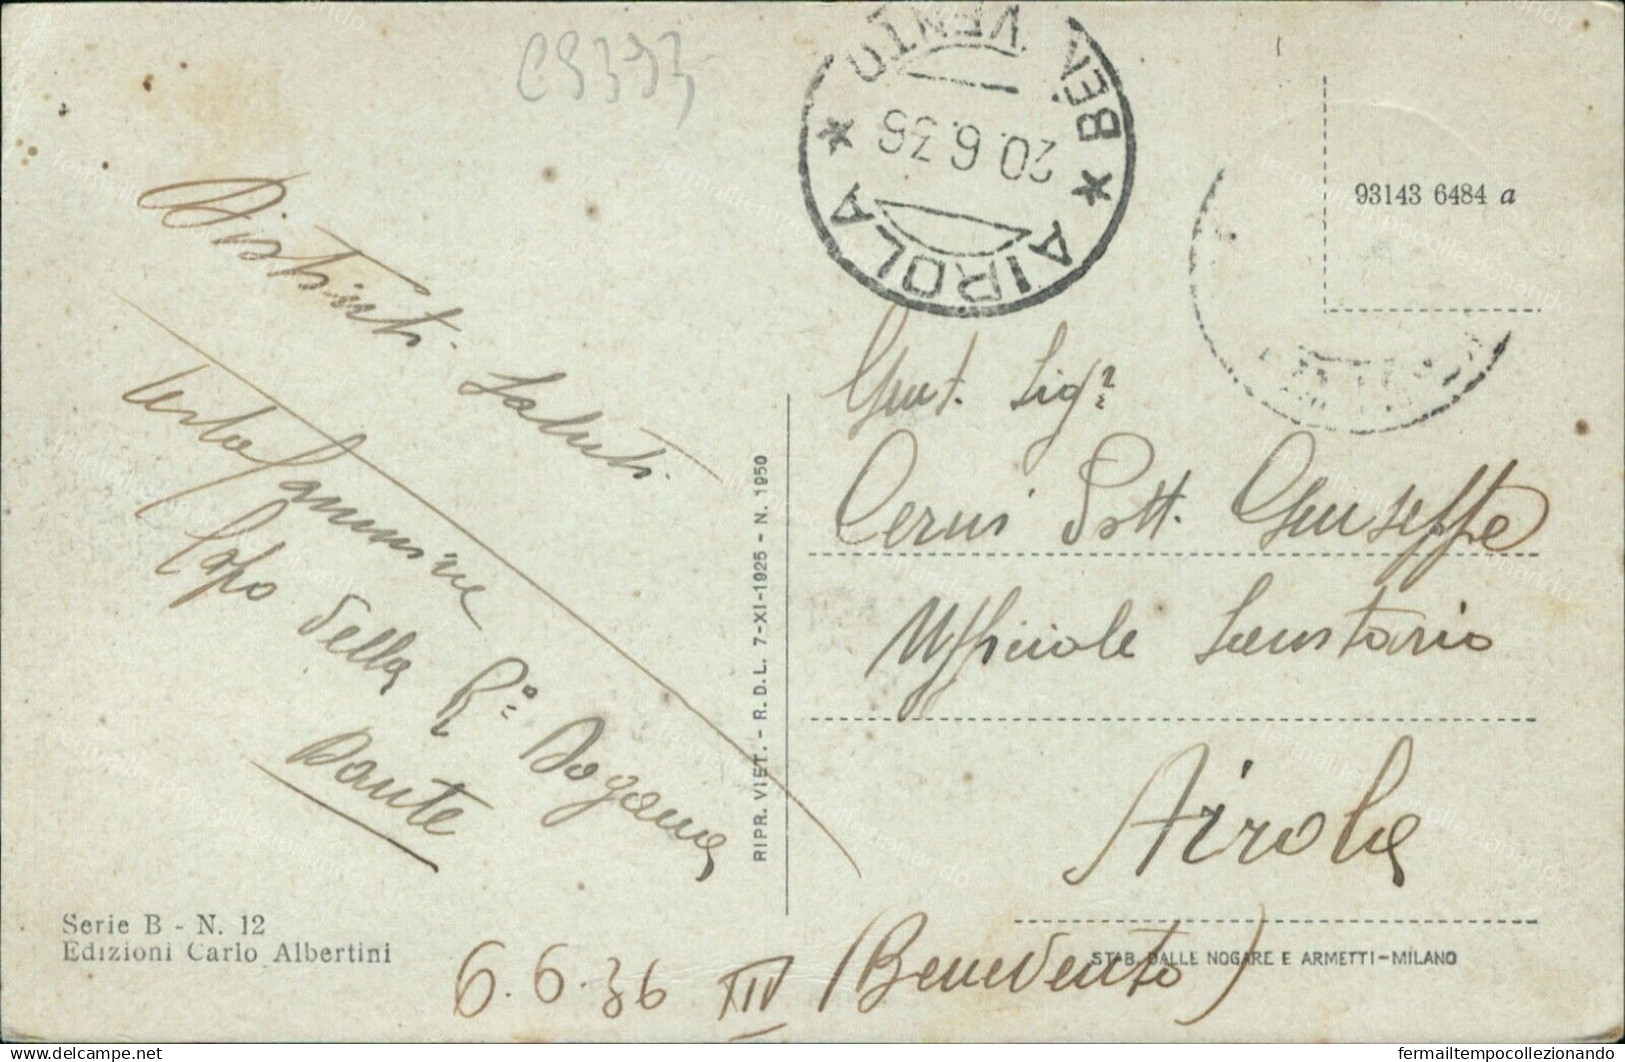 C9393
BENEVENTO
20.6.36
AIROLA
93143 6484 a
Distinti Saluti
Testa Carmine
Capo della R.ª Dogana
Dante
6.6.36 XIV
RIPR. VIET. - R. D. L. 7-XI-1925 - N. 1950
Serie B - N. 12
Edizioni Carlo Albertini
Gent. Sig.
Dott. Giuseppe
Ufficiale Sanitario
Airola
(Benevento)
STAB. DALLE NOGARE E ARMETTI-MILANO
https://www.delcampe.net
fermailtempocollezionando